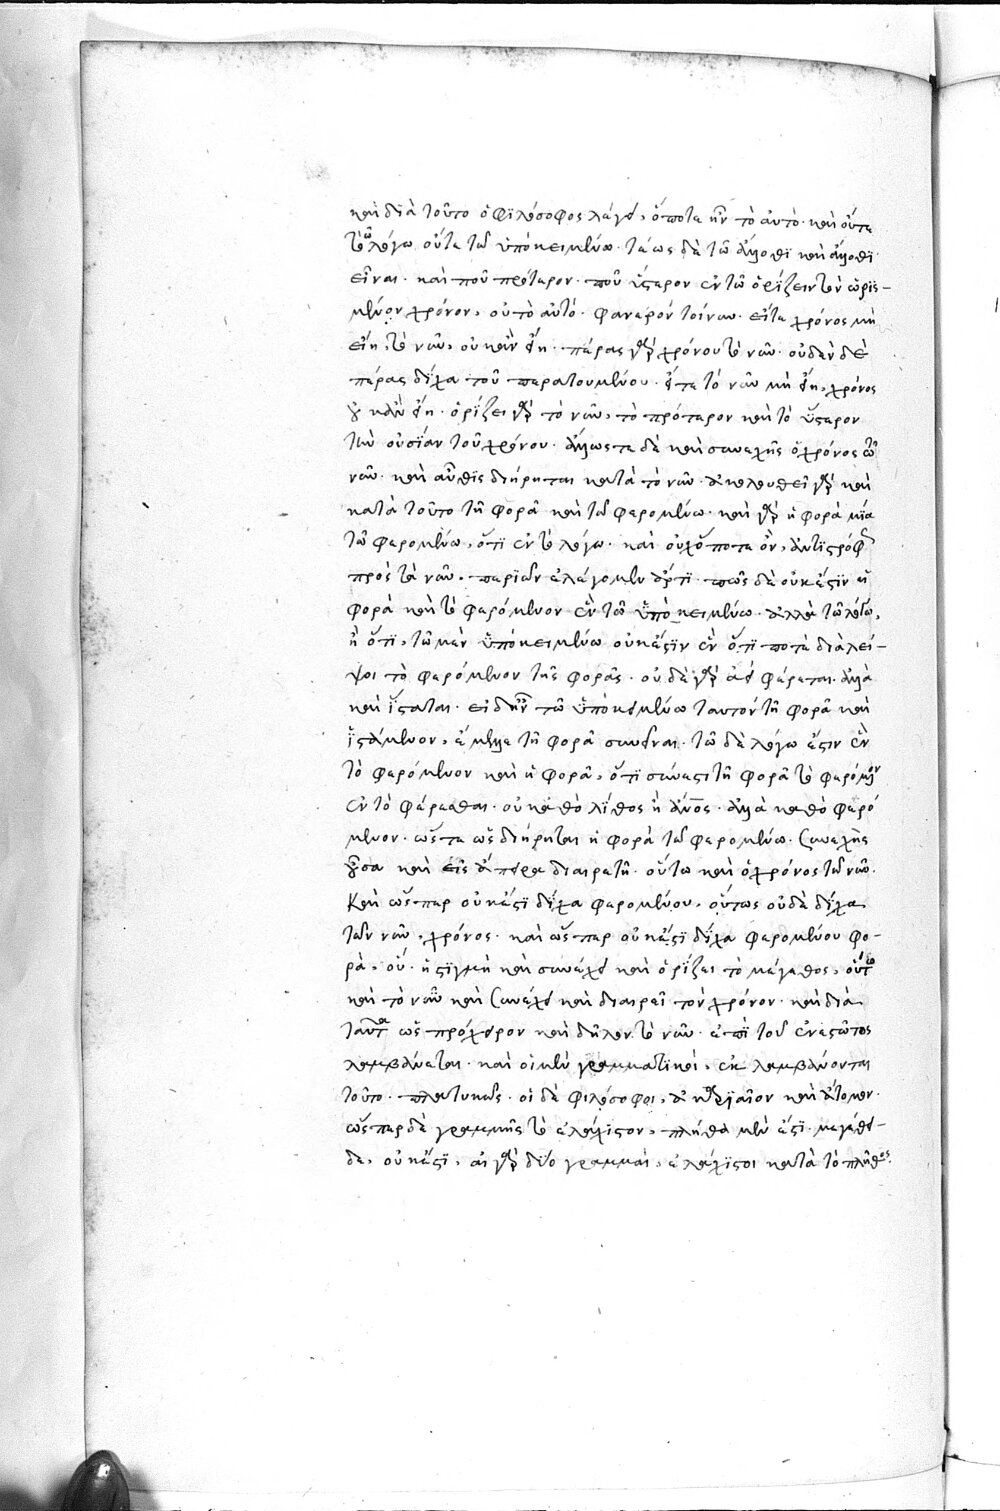 καὶ διὰ τοῦτο ὁ φιλόσοφος λέγει, ὅ ποτε ἦν τὸ αὐτό· καὶ οὔτε
τῶ λόγω, οὔτε τῶ ὑποκειμένω. τέως δὲ τῶ ἄλλοθι καὶ ἄλλοθι
εἶναι. καὶ ποῦ πρότερον· ποῦ ὕστερον ἐν τῶ ὁρίζειν τὸν ὡρισ-
μένον χρόνον, οὐ τὸ αὐτό. φανερὸν τοίνυν. εἴτε χρόνος μὴ
εἴη, τὸ νῦν, οὐκ ἂν εἴη. πέρας γὰρ χρόνου τὸ νῦν. οὐδὲν δὲ
πέρας δίχα τοῦ περατουμένου. εἴτε τὸ νῦν μὴ εἴη, χρόνος
οὐκ ἂν εἴη. ὁρίζει γὰρ τὸ νῦν, τὸ πρότερον καὶ τὸ ὕστερον
τὴν οὐσίαν τοῦ χρόνου. ἄλλως τε δὲ καὶ συνεχὴς ὁ χρόνος τῶ
νῦν. καὶ αὖθις διήρηται κατὰ τὸ νῦν. ἀκολουθεῖ γὰρ καὶ
κατὰ τοῦτο τῆ φορᾶ καὶ τῶ φερομένω. καὶ γὰρ ἡ φορὰ μία
τῶ φερομένω, ὅτι ἐν τῶ λόγω. καὶ οὐχ ὅ ποτε ὂν, ἀντιστρόφως
πρὸς τὸ νῦν. περὶ ὧν ἐλέγομεν ἄρτι. πῶς δὲ οὐκ ἔστιν ἡ
φορὰ καὶ τὸ φερόμενον ἓν τῶ ὑποκειμένω. ἀλλὰ τῶ λόγω,
ἢ ὅτι, τῶ μὲν ὑποκειμένω οὐκ ἔστιν ἓν ὅτι ποτὲ διαλεί-
ψοι τὸ φερόμενον τῆς φορᾶς. οὐδὲ γὰρ ἀεὶ φέρεται. ἀλλὰ
καὶ ἵσταται. εἰ δ' ἦν τῶ ὑποκειμένω ταυτὸν τῆ φορᾶ καὶ
ἱστάμενον, ἔμελλε τῆ φορᾶ συνεῖναι. τῶ δὲ λόγω ἔστιν ἓν
τὸ φερόμενον καὶ ἡ φορᾶ, ὅτι σύνεστι τῆ φορᾶ τὸ φερόμενον
ἐν τὸ φέρεσθαι. οὐ καθὸ λίθος ἢ ἄνος. ἀλλὰ καθὸ φερό
μενον. ὥστε ὡς διήρηται ἡ φορὰ τῶ φερομένω. συνεχὴς
οὖσα καὶ εἰς ἄπειρα διαιρετή. οὕτω καὶ ὁ χρόνος τῶ νῦν.
Καὶ ὥσπερ οὐκ ἔστι δίχα φερομένου, οὕτως οὐδὲ δίχα
τῶν νῦν, χρόνος. καὶ ὥσπερ οὐκ ἔστι δίχα φερομένου φο-
ρὰ, οὐ. ἡ στιγμὴ καὶ συνέχει καὶ ὁρίζει τὸ μέγεθος, οὕτω
καὶ τὸ νῦν καὶ συνέχει καὶ διαιρεῖ τὸν χρόνον. καὶ διὰ
ταῦτα ὡς πρόχειρον καὶ δῆλον τὸ νῦν. ἐπὶ τοῦ ἐνεστῶτος
λαμβάνεται. καὶ οἱ μὲν γραμματικοὶ, ἐκλαμβάνονται
τοῦτο. πλατυκῶς. οἱ δὲ φιλόσοφοι, ἀκαριαῖον καὶ ἄτομον.
ὥσπερ δὲ γραμμῆς τὸ ἐλάχιστον, πλήθει μὲν ἔστι. μεγέθει
δὲ, οὐκ ἔστι. αἱ γὰρ δύο γραμμαὶ, ἐλάχισται κατὰ τὸ πλῆθος.